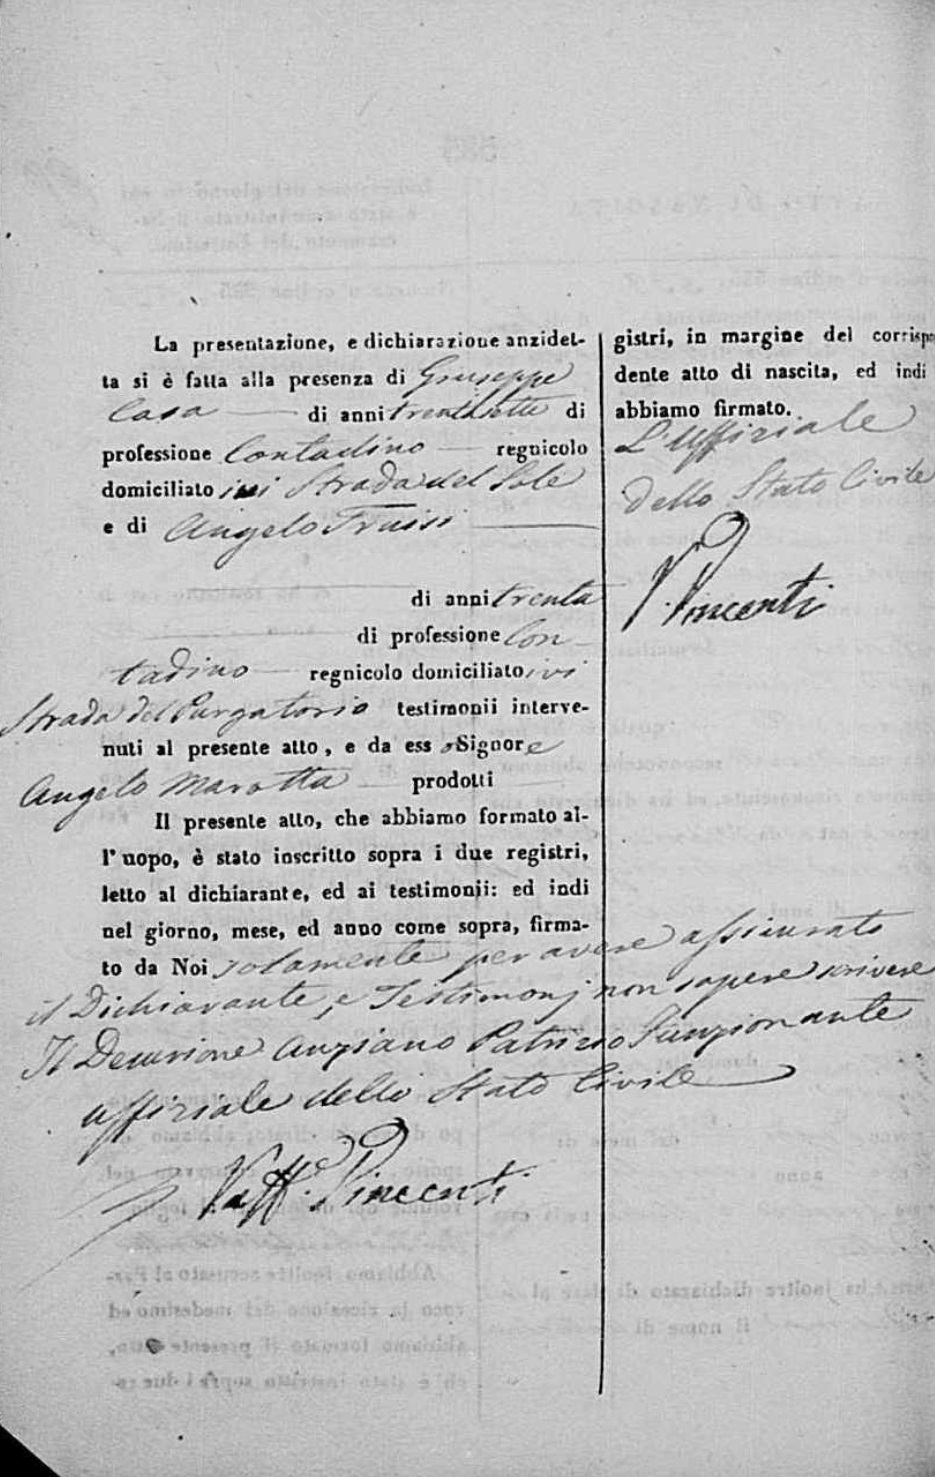 La presentazione, e dichiarazione anzidet-
ta si è fatta alla presenza di Giuseppe
Casa di anni trentasette di
professione Contadino regnicolo
domiciliato ivi Strada del Sole
e di Angelo
di anni trenta
di professione Con-
tadino regnicolo domiciliato ivi
Strada del Purgatorio testimonii interve-
nuti al presente atto, e da esso Signore
Angelo Marotta prodotti
Il presente atto, che abbiamo formato al-
l'uopo, è stato inscritto sopra i due registri,
letto al dichiarante, ed ai testimonii: ed indi
nel giorno, mese, ed anno come sopra, firma-
to da Noi solamente per avere assicurato
il Dichiarante, e Testimonj non sapere scrivere
Il Decurione Anziano Patrizio Funzionante
uffiziale dello Stato Civile
Raff.e Vincenti
gistri, in margine del corrispo
dente atto di nascita, ed indi
abbiamo firmato.
L'Uffiziale
dello Stato Civile
Vincenti